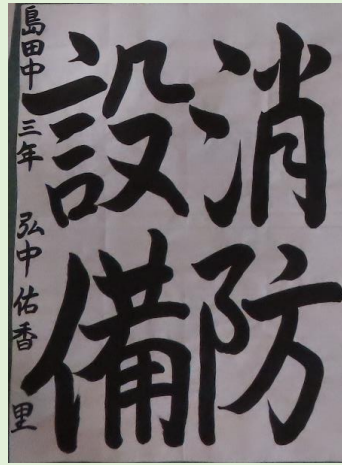 消防
設備
島田中 三年 弘中佑香里